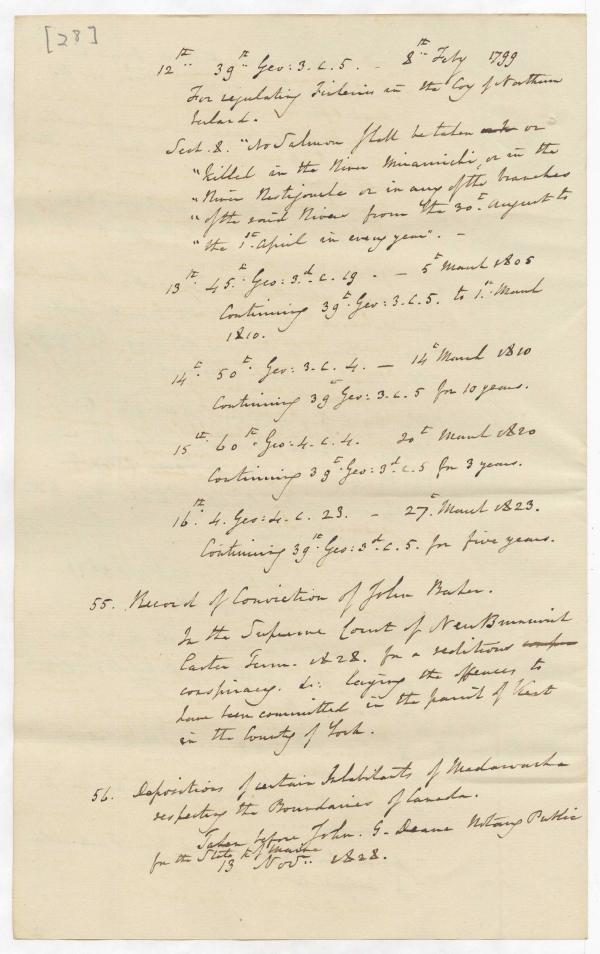 [28]
12th 39th Geo: 3. c. 5. - 8th Feby 1799
For regulating Fisheries in the Coy of Northum
berland.
Sect. 8. "No Salmon shall be taken or
"killed in the River Miramichi, or in the
"River Restigouche or in any of the branches
"of the said Rivers from the 30th August to
"the 1st April in every year". -
13th 45th Geo: 3d c. 19. - 5th March 1805
Continuing 39th Geo: 3. c. 5. to 1st March
1810.
14th 50th Geo: 3. c. 4. - 14th March 1810
Continuing 39th Geo: 3. c. 5 for 10 years.
15th 60th Geo: 4. c. 4. 20th March 1820
Continuing 39th Geo: 3d c. 5 for 3 years.
16th 4. Geo: 4. c. 23. - 27th March 1823.
Continuing 39th Geo: 3d c. 5. for five years.
55. Record of Conviction of John Baker.
In the Supreme Court of New Brunswick
Easter Term. 1828. for a seditious
conspiracy. &c: laying the offences to
have been committed in the parish of Kent
in the County of York.
56. Depositions of certain Inhabitants of Madawaska
respecting the Boundaries of Canada.
Taken before John. G. Deane Notary Public
for the State of Maine
13th Novr. 1828.